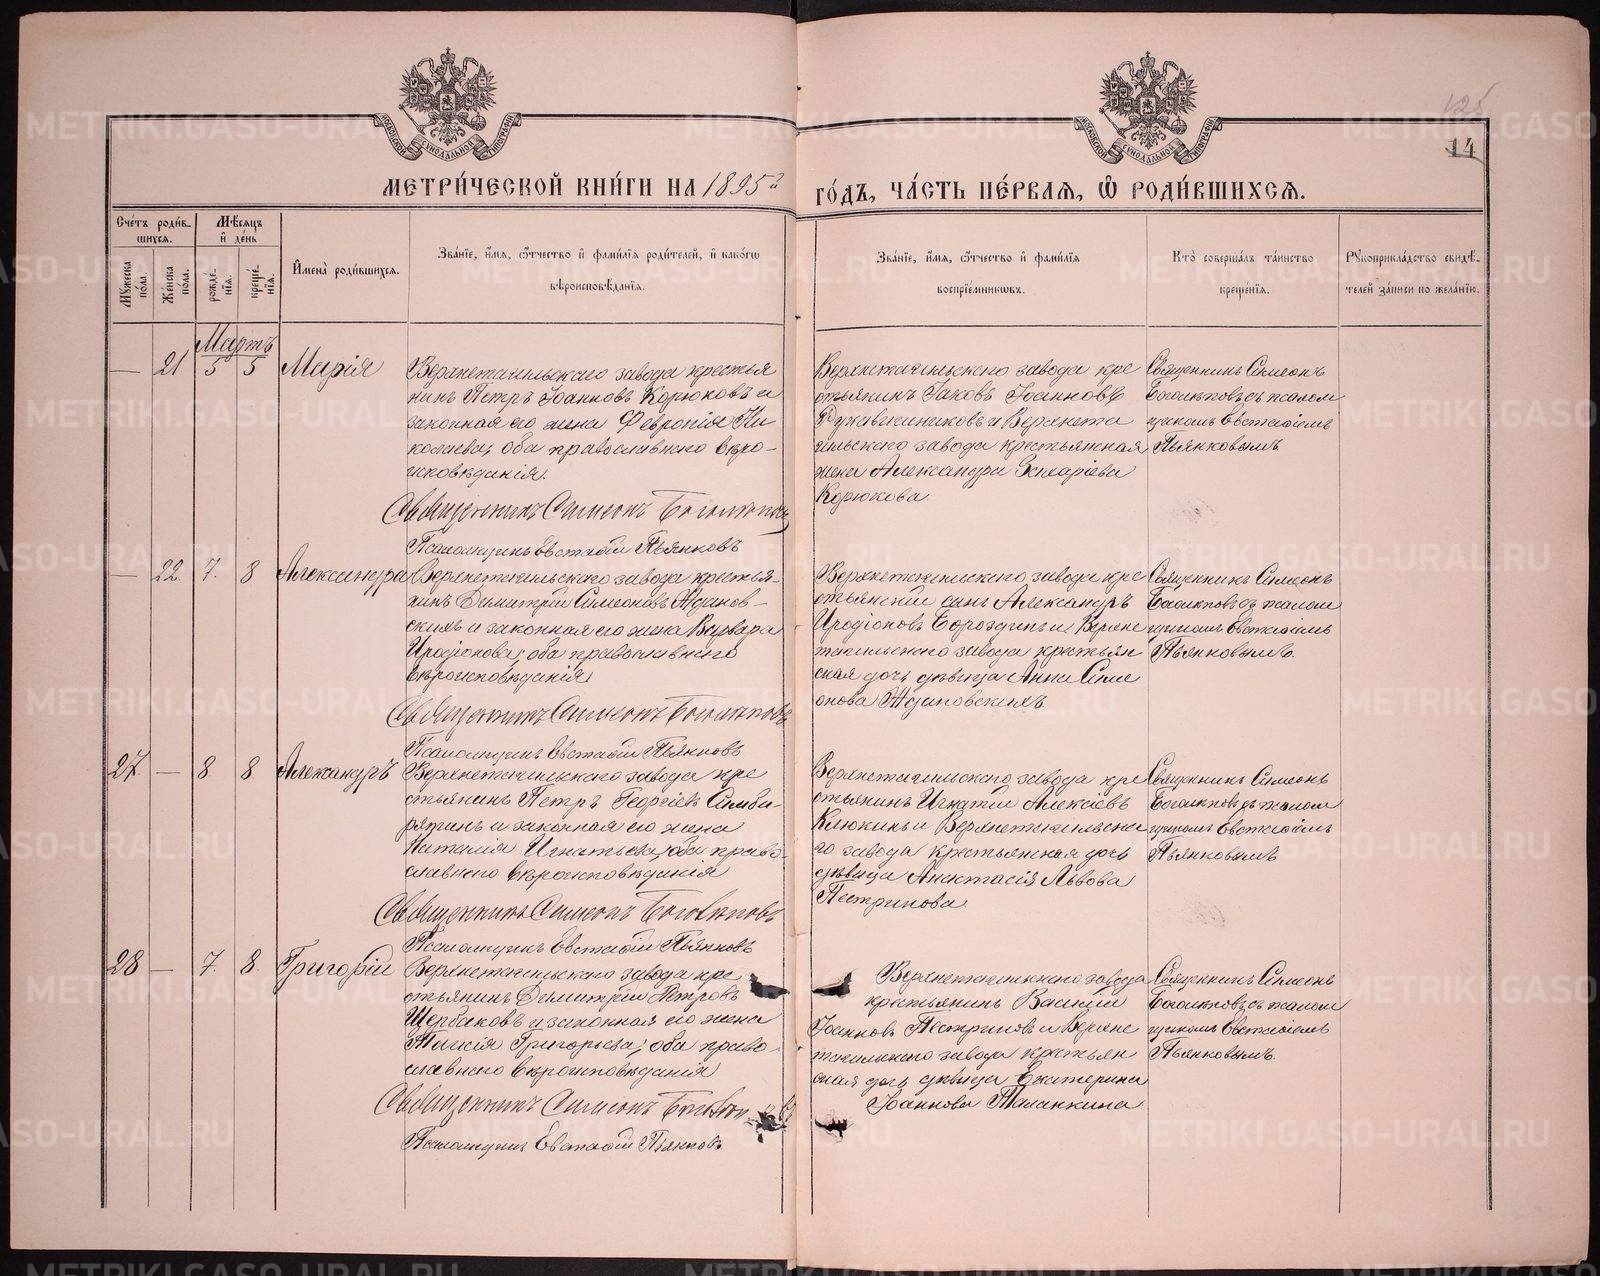 125
14
МОСКОВСКОЙ СѴНОДАЛЬНОЙ ТИПОГРАФІИ
МОСКОВСКОЙ СѴНОДАЛЬНОЙ ТИПОГРАФІИ
МЕТРИ́ЧЕСКОЙ КНИ́ГИ НА 1895й ГО́ДЪ, ЧА́СТЬ ПЕ́РВАЯ, Ѡ҆ РОДИ́ВШИХСЯ.
Сче́тъ роди́в-
шихся.
Мѣ́сяцъ
и҆ де́нь
Мꙋ́жеска по́ла.
Же́нска по́ла.
рожде́-
нїя.
креще́-
нїя.
И҆мена̀ роди́вшихся.
Зва́нїе, и҆́мя, ѻ҆́тчество и҆ фами́лїя роди́телей, и҆ како́гѡ
вѣроисповѣ́данїя.
Зва́нїе, и҆́мя, ѻ҆́тчество и҆ фами́лїя
воспрїе́мникѡвъ.
Кто̀ соверша́лъ та́инство
креще́нїя.
Рꙋкоприкла́дство свидѣ́-
телей за́писи по жела́нїю.
Мартъ
— 21 5 5 Марія
Верхнетагильскаго завода крестья
нинъ Петръ Іоанновъ Корюковъ и
законная его жена Февронія Ни
колаева; оба православнаго вѣро-
исповѣданія.
Священникъ Симеонъ Боголѣповъ
Псаломщикъ Евстафій Пьянковъ
Верхнетагильскаго завода кре
стьянинъ Іаковъ Іоанновъ
и Верхнета
гильскаго завода крестьянская
жена Александра Захаріева
Корюкова.
Священникъ Симеонъ
Боголѣповъ съ псалом
щикомъ Евстафіемъ
Пьянковымъ.
— 22 7. 8 Александра
Верхнетагильскаго завода крестья-
нинъ Димитрій Симеоновъ Жданов-
скихъ и законная его жена Варвара
Иродіонова; оба православнаго
вѣроисповѣданія
Священникъ Симеонъ Боголѣповъ
Псаломщикъ Евстафій Пьянковъ
Верхнетагильскаго завода кре
стьянскій сынъ Александръ
Иродіоновъ Бороздинъ и Верхне
тагильскаго завода крестьян
ская дочь дѣвица Анна Симе
онова Ждановскихъ
Священникъ Симеонъ
Боголѣповъ съ псалом
щикомъ Евстафіемъ
Пьянковымъ.
27 — 8 8 Александръ
Верхнетагильскаго завода кре
стьянинъ Петръ Георгіевъ Симби
рятинъ и законная его жена
Наталія Игнатьева; оба право-
славнаго вѣроисповѣданія
Священникъ Симеонъ Боголѣповъ
Псаломщикъ Евстафій Пьянковъ
Верхнетагильскаго завода кре
стьянинъ Игнатій Алексіевъ
Клюкинъ и Верхнетагильска
го завода крестьянская дочь
дѣвица Анастасія Львова
Пестрикова
Священникъ Симеонъ
Боголѣповъ съ псалом
щикомъ Евстафіемъ
Пьянковымъ
28 — 7. 8. Григорій
Верхнетагильскаго завода кре
стьянинъ Димитрій Петровъ
Щербаковъ и законная его жена
Таисія Григорьева; оба право-
славнаго вѣроисповѣданія
Священникъ Симеонъ
Псаломщикъ Евстафій Пьянковъ
Верхнетагильскаго завода
крестьянинъ Василій
Іоанновъ Пестриковъ и Верхне
тагильскаго завода крестьян
ская дочь дѣвица Екатерина
Іоаннова Таланкина
Священникъ Симеонъ
Боголѣповъ съ псалом
щикомъ Евстафіемъ
Пьянковымъ.
METRIKI.GASO-URAL.RU